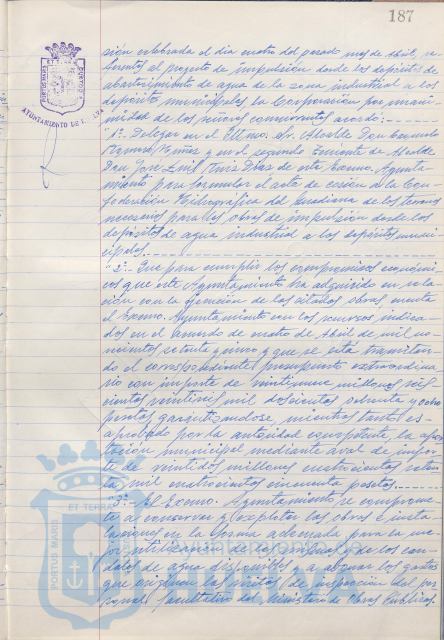 187
sión celebrada el día cuatro del pasado mes de Abril, re-
ferentes al proyecto de impulsión desde los depósitos de
abastecimiento de agua de la zona industrial a los
depósitos municipales, la Corporación por unani-
midad de los señores concurrentes acordó:
"1º.- Delegar en el Iltmo. Sr. Alcalde Don
y en el segundo Teniente de Alcalde
Don José Luis Ruiz Díaz de este Excmo. Ayunta-
miento para formular el acta de cesión a la Con-
federación Hidrográfica del Guadiana de los terrenos
necesarios para las obras de impulsión desde los
depósitos de agua industrial a los depósitos muni-
cipales.
"2º.- Que para cumplir los compromisos económi-
cos que este Ayuntamiento ha adquirido en rela-
ción con la ejecución de las citadas obras cuenta
el Excmo. Ayuntamiento con los recursos indica-
dos en el acuerdo de cuatro de Abril de mil no-
vecientos setenta y cinco y que se está tramitan-
do el correspondiente presupuesto extraordina-
rio con importe de veintinueve millones seis-
cientos veintiseis mil doscientas setenta y ocho
pesetas garantizándose, mientras tanto es
aprobado por la autoridad competente, la apor-
tación municipal mediante aval de impor-
te de veintidós millones cuatrocientas
mil cuatrocientas cincuenta pesetas.
"3º.- El Excmo. Ayuntamiento se comprome-
te a conservar y explotar las obras e insta-
laciones en la forma adecuada para la me-
jor utilización de las mismas y de los cau-
dales de agua disponibles y a abonar los gastos
que originen las visitas de inspección del per-
sonal facultativo del Ministerio de Obras Públicas.
PORTUS MARIS
ET TERRAE
AYUNTAMIENTO DE HUELVA